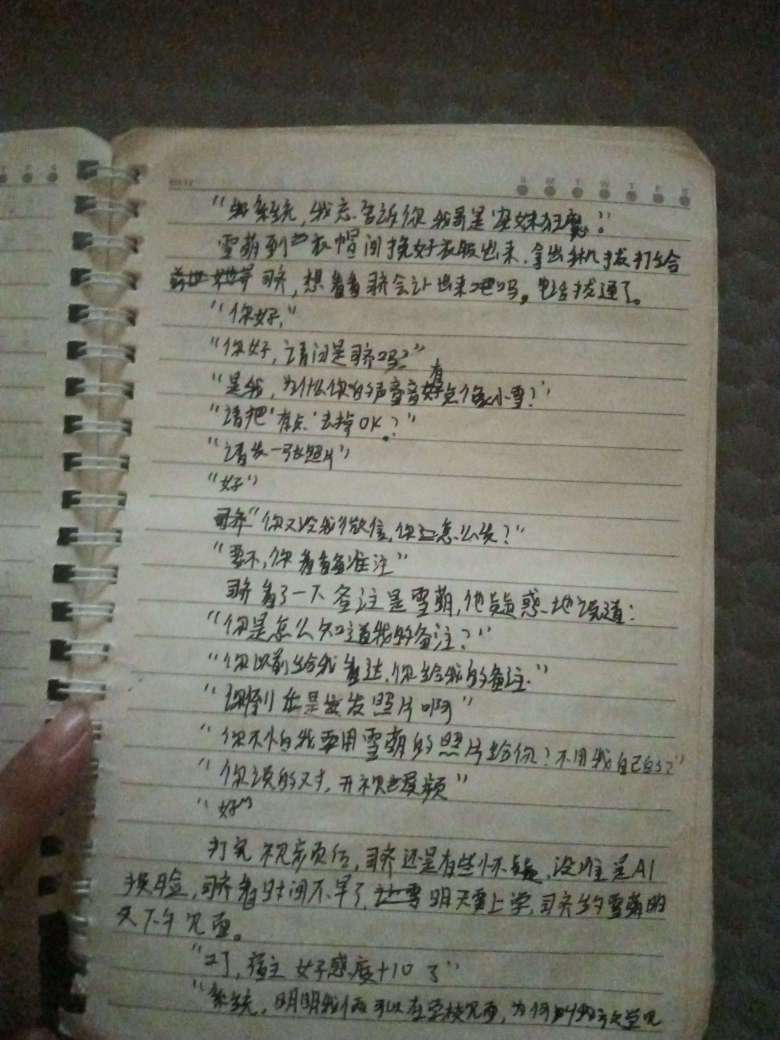 "系统，我忘告诉你我哥是'宠妹狂魔'？"
雪萌到衣帽间换好衣服出来，拿出手机拔打给
司齐，想看看司齐会认出来吧吗，电话拔通了。
"你好，"
"你好，请问是司齐吗？"
"是我，为什么你的声音有点像小雪？"
"请把'有点'去掉OK？"
"请发一张照片"
"好"
司齐"你又没我微信，你怎么发？"
"要不，你看看备注"
司齐看了一下备注是雪萌，他疑惑地说道：
"你是怎么知道我的备注？"
"你以前给我看过，你给我的备注."
"你到底是发照片啊"
"你不怕我要用雪萌的照片给你？不用我自己的？"
"你说的对，开视频"
"好"
打完视频后，司齐还是有些怀疑，没准是AI
换脸，司齐看时间不早了明天要上学，司齐约雪萌明
天下午见面。
"叮，宿主好感度+10了"
"系统，明明我们可以在学校见面，为何